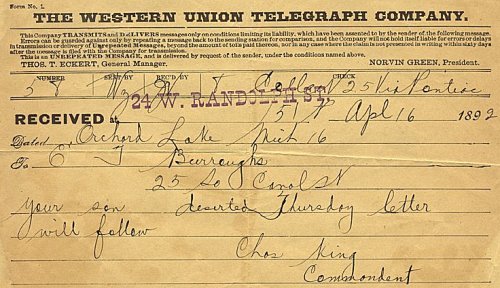 Form No. 1.
THE WESTERN UNION TELEGRAPH COMPANY.
This Company TRANSMITS and DELIVERS messages only on conditions limiting its liability, which have been assented to by the sender of the following message.
Errors can be guarded against only by repeating a message back to the sending station for comparison, and the Company will not hold itself liable for errors or delays
in transmission or delivery of Unrepeated Messages, beyond the amount of tolls paid thereon, nor in any case where the claim is not presented in writing within sixty days
after the message is filed with the Company for transmission.
This is an UNREPEATED MESSAGE, and is delivered by request of the sender, under the conditions named above.
THOS. T. ECKERT, General Manager. NORVIN GREEN, President.
NUMBER SENT BY REC'D BY CHECK
58 25 Via Pontiac
24 W. RANDOLPH ST.
RECEIVED at 151 P Apl 16 1892
Dated Orchard Lake Mich 16
To
Burroughs
25 So Canal St
Your son deserted Thursday letter
will follow
Chas King
Commondent